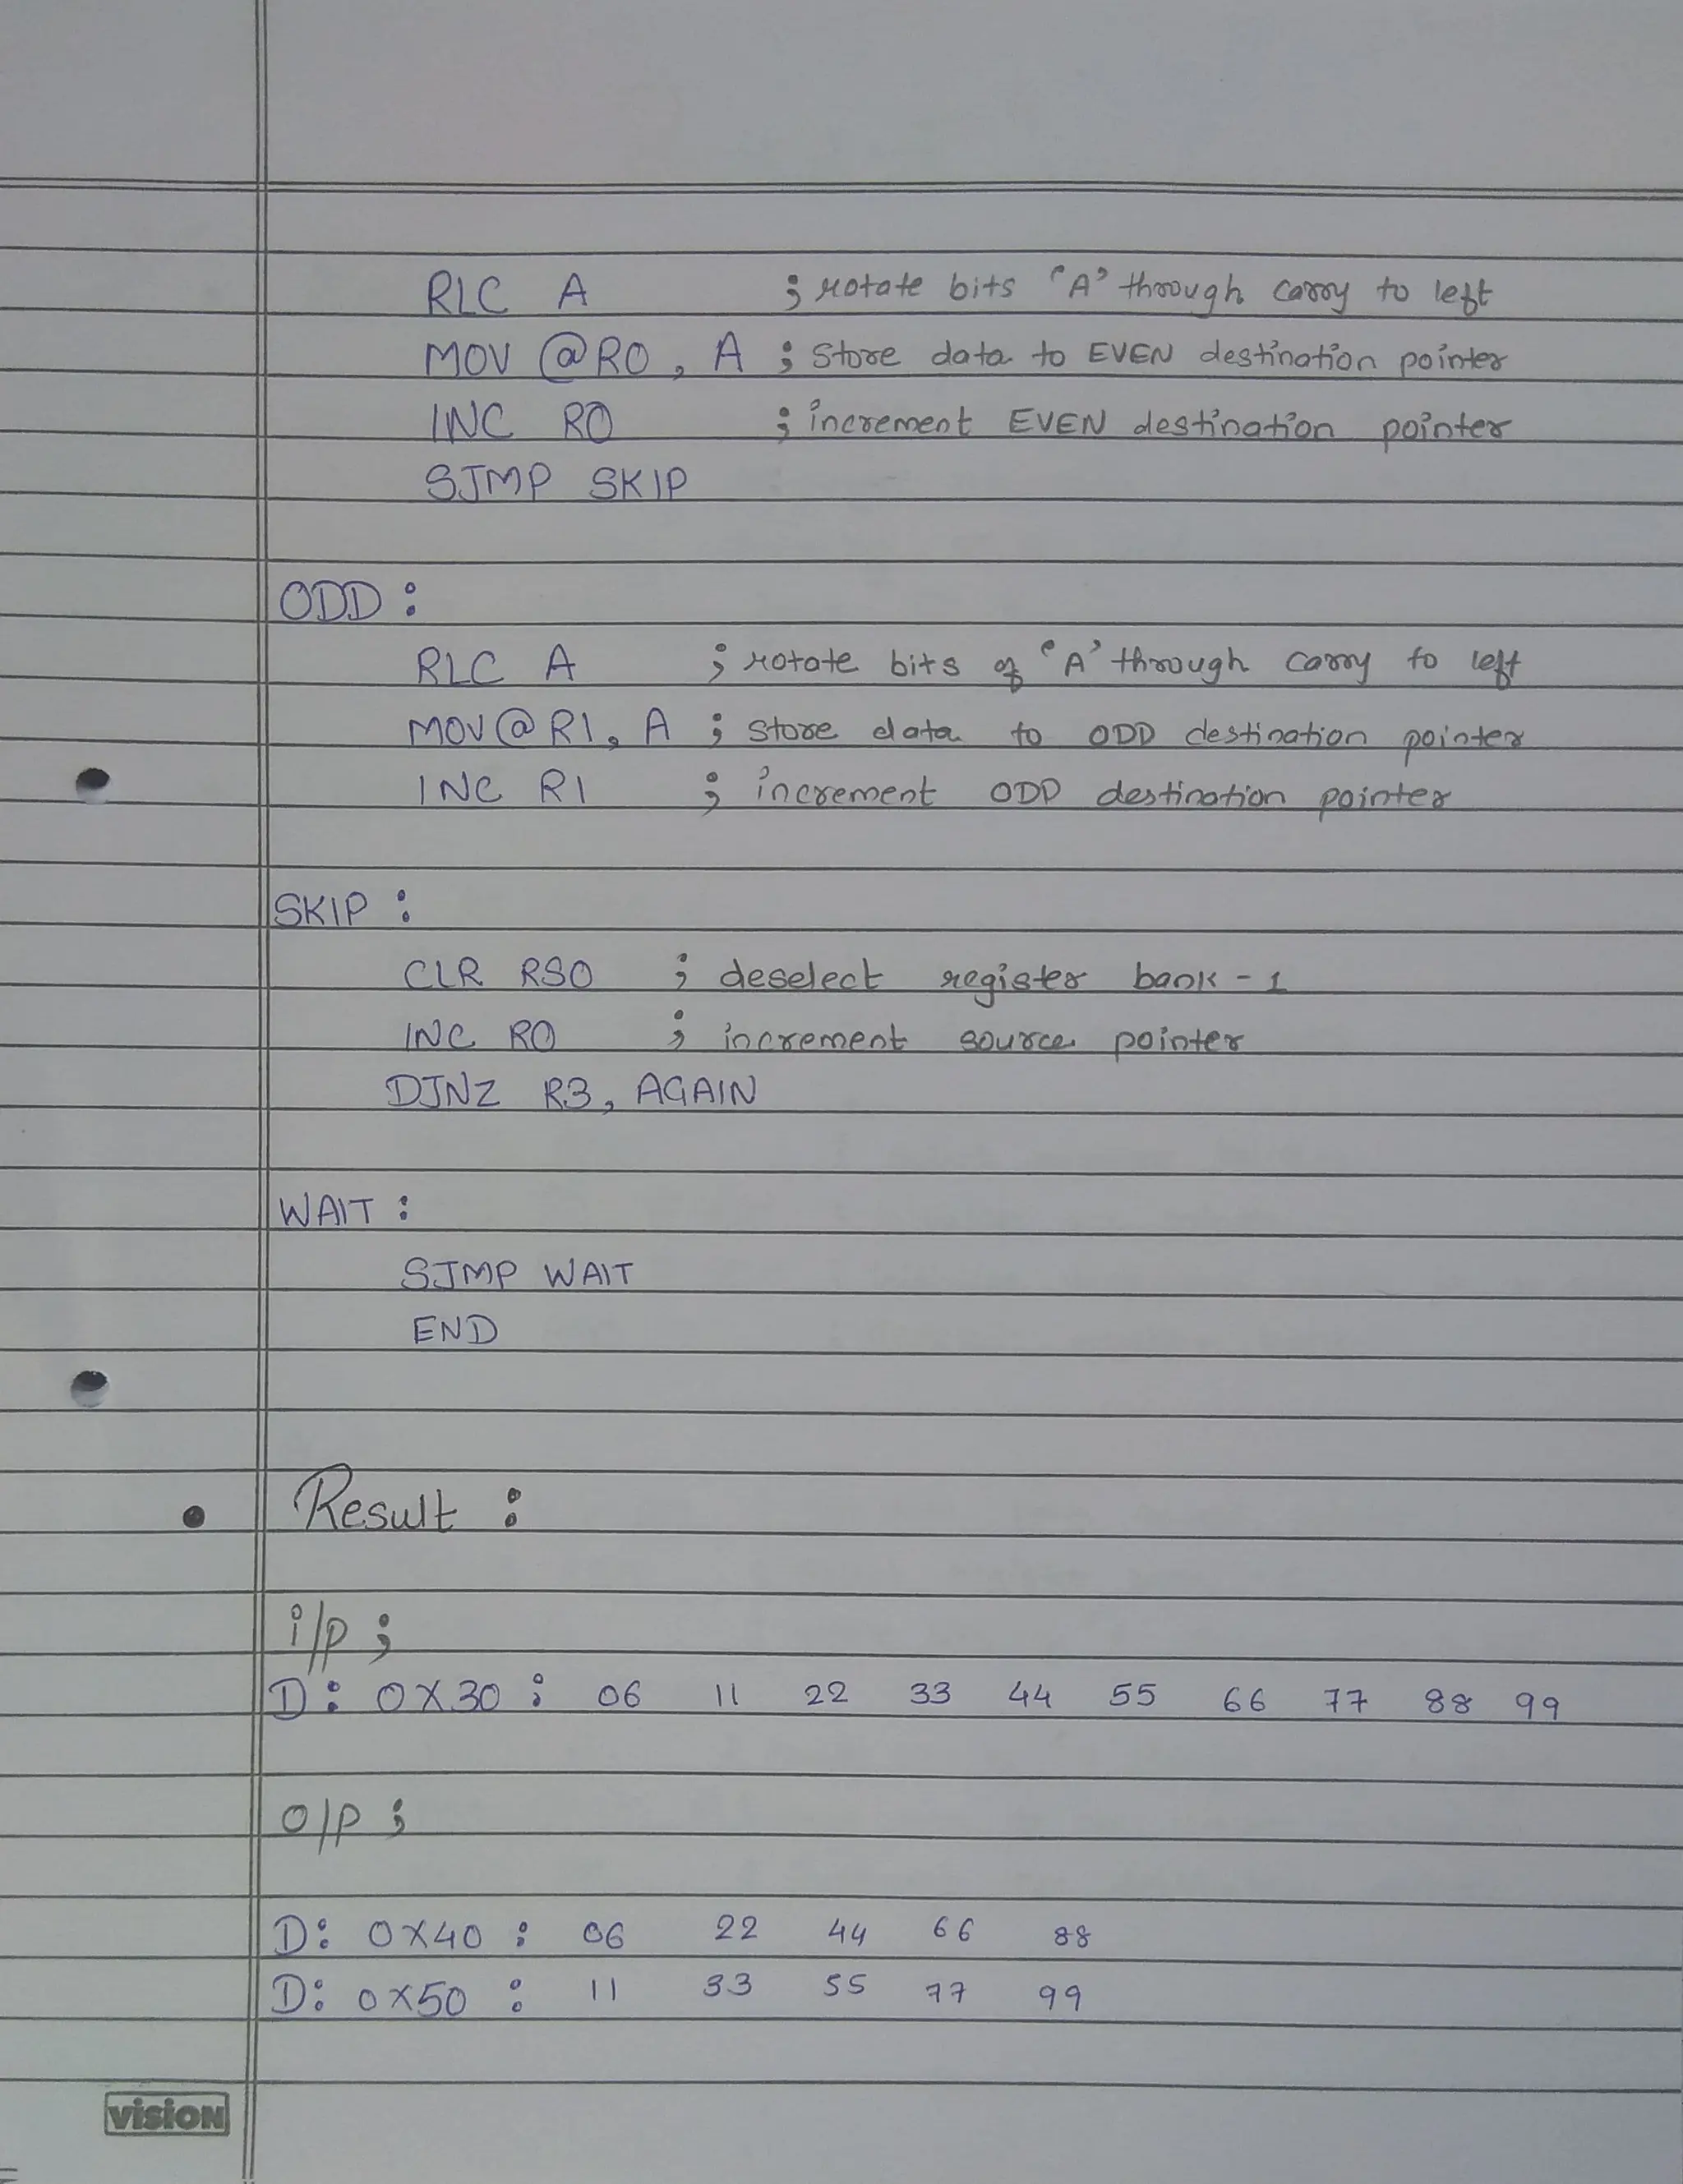 RLC A ; rotate bits 'A' through carry to left
MOV @R0, A ; store data to EVEN destination pointer
INC R0 ; increment EVEN destination pointer
SJMP SKIP
ODD :
RLC A ; rotate bits of 'A' through carry to left
MOV @ R1, A ; store data to ODD destination pointer
INC R1 ; increment ODD destination pointer
SKIP :
CLR RS0 ; deselect register bank - 1
INC R0 ; increment source pointer
DJNZ R3, AGAIN
WAIT :
SJMP WAIT
END
• Result :
i/p ;
D: 0X30 : 06 11 22 33 44 55 66 77 88 99
O/P ;
D: 0X40 : 06 22 44 66 88
D: 0X50 : 11 33 55 77 99
vision